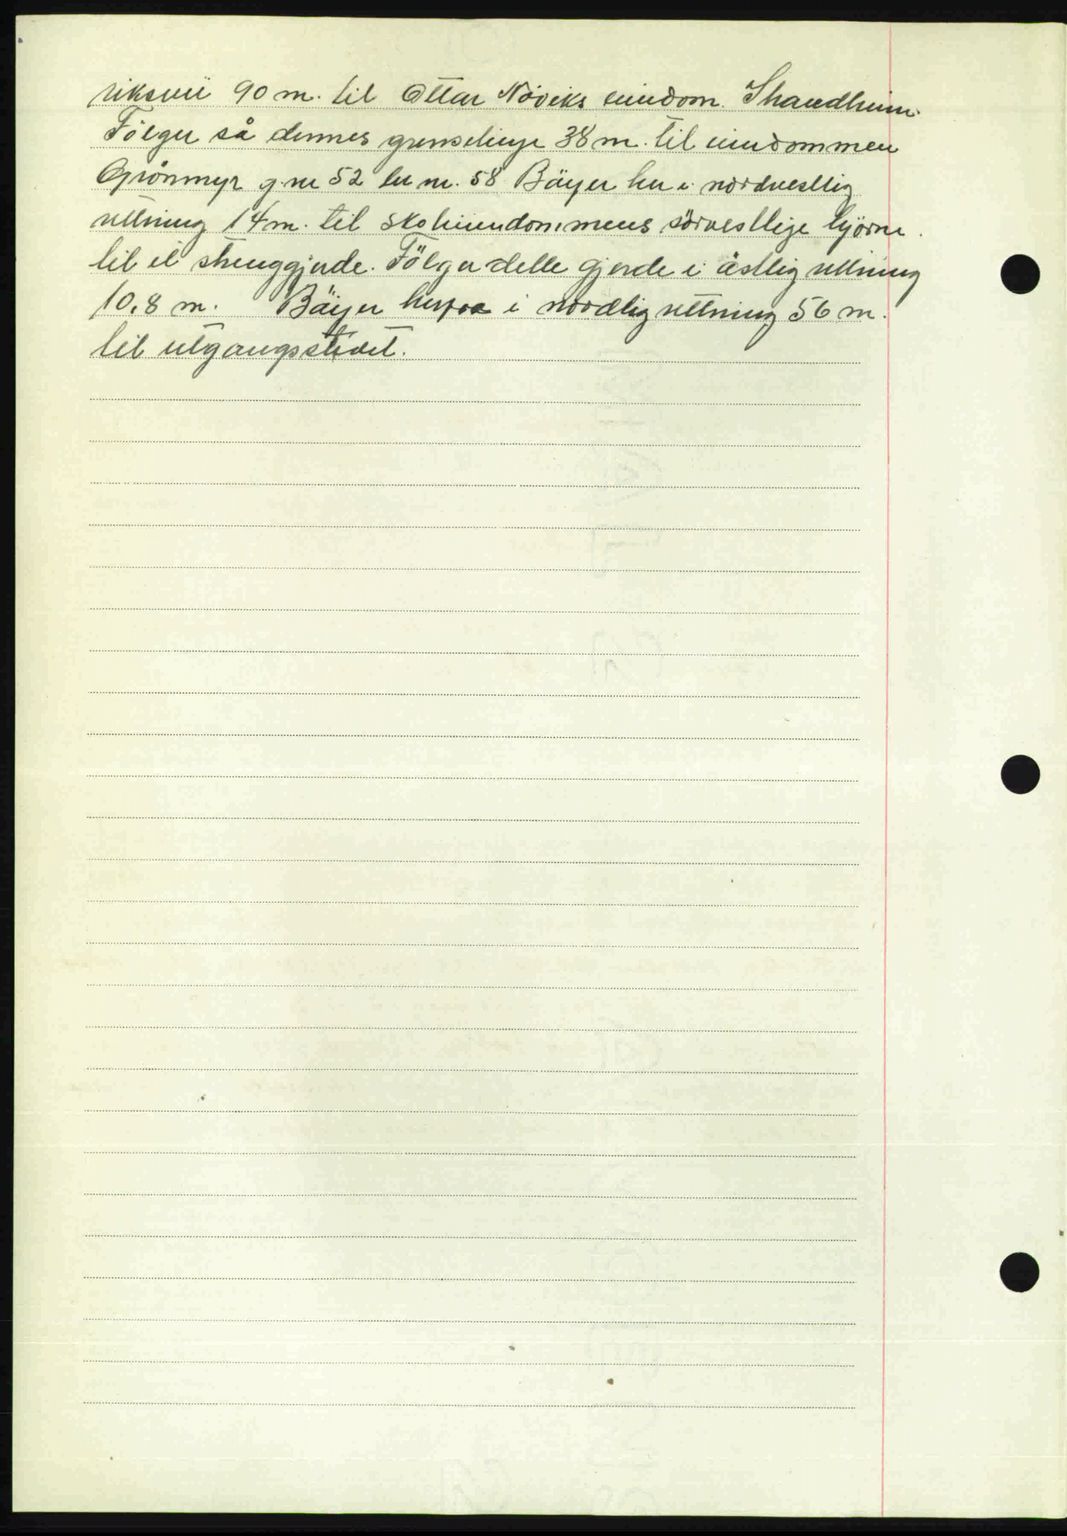 riksvei 90 m. til Ottar Növiks eiendom Strandheim.
Fölger så dennes grenselinje 38 m. til eiendommen
Grönmyr g nr 52 br nr. 58 Böyer her i nordvestlig
retning 14 m. til skoleiendommens sörvestlige hjörne.
til et strenggjerde. Fölger dette gjerde i östlig retning
10,8 m. Böyer herfra i nordlig retning 56 m.
til utgangsstedet.